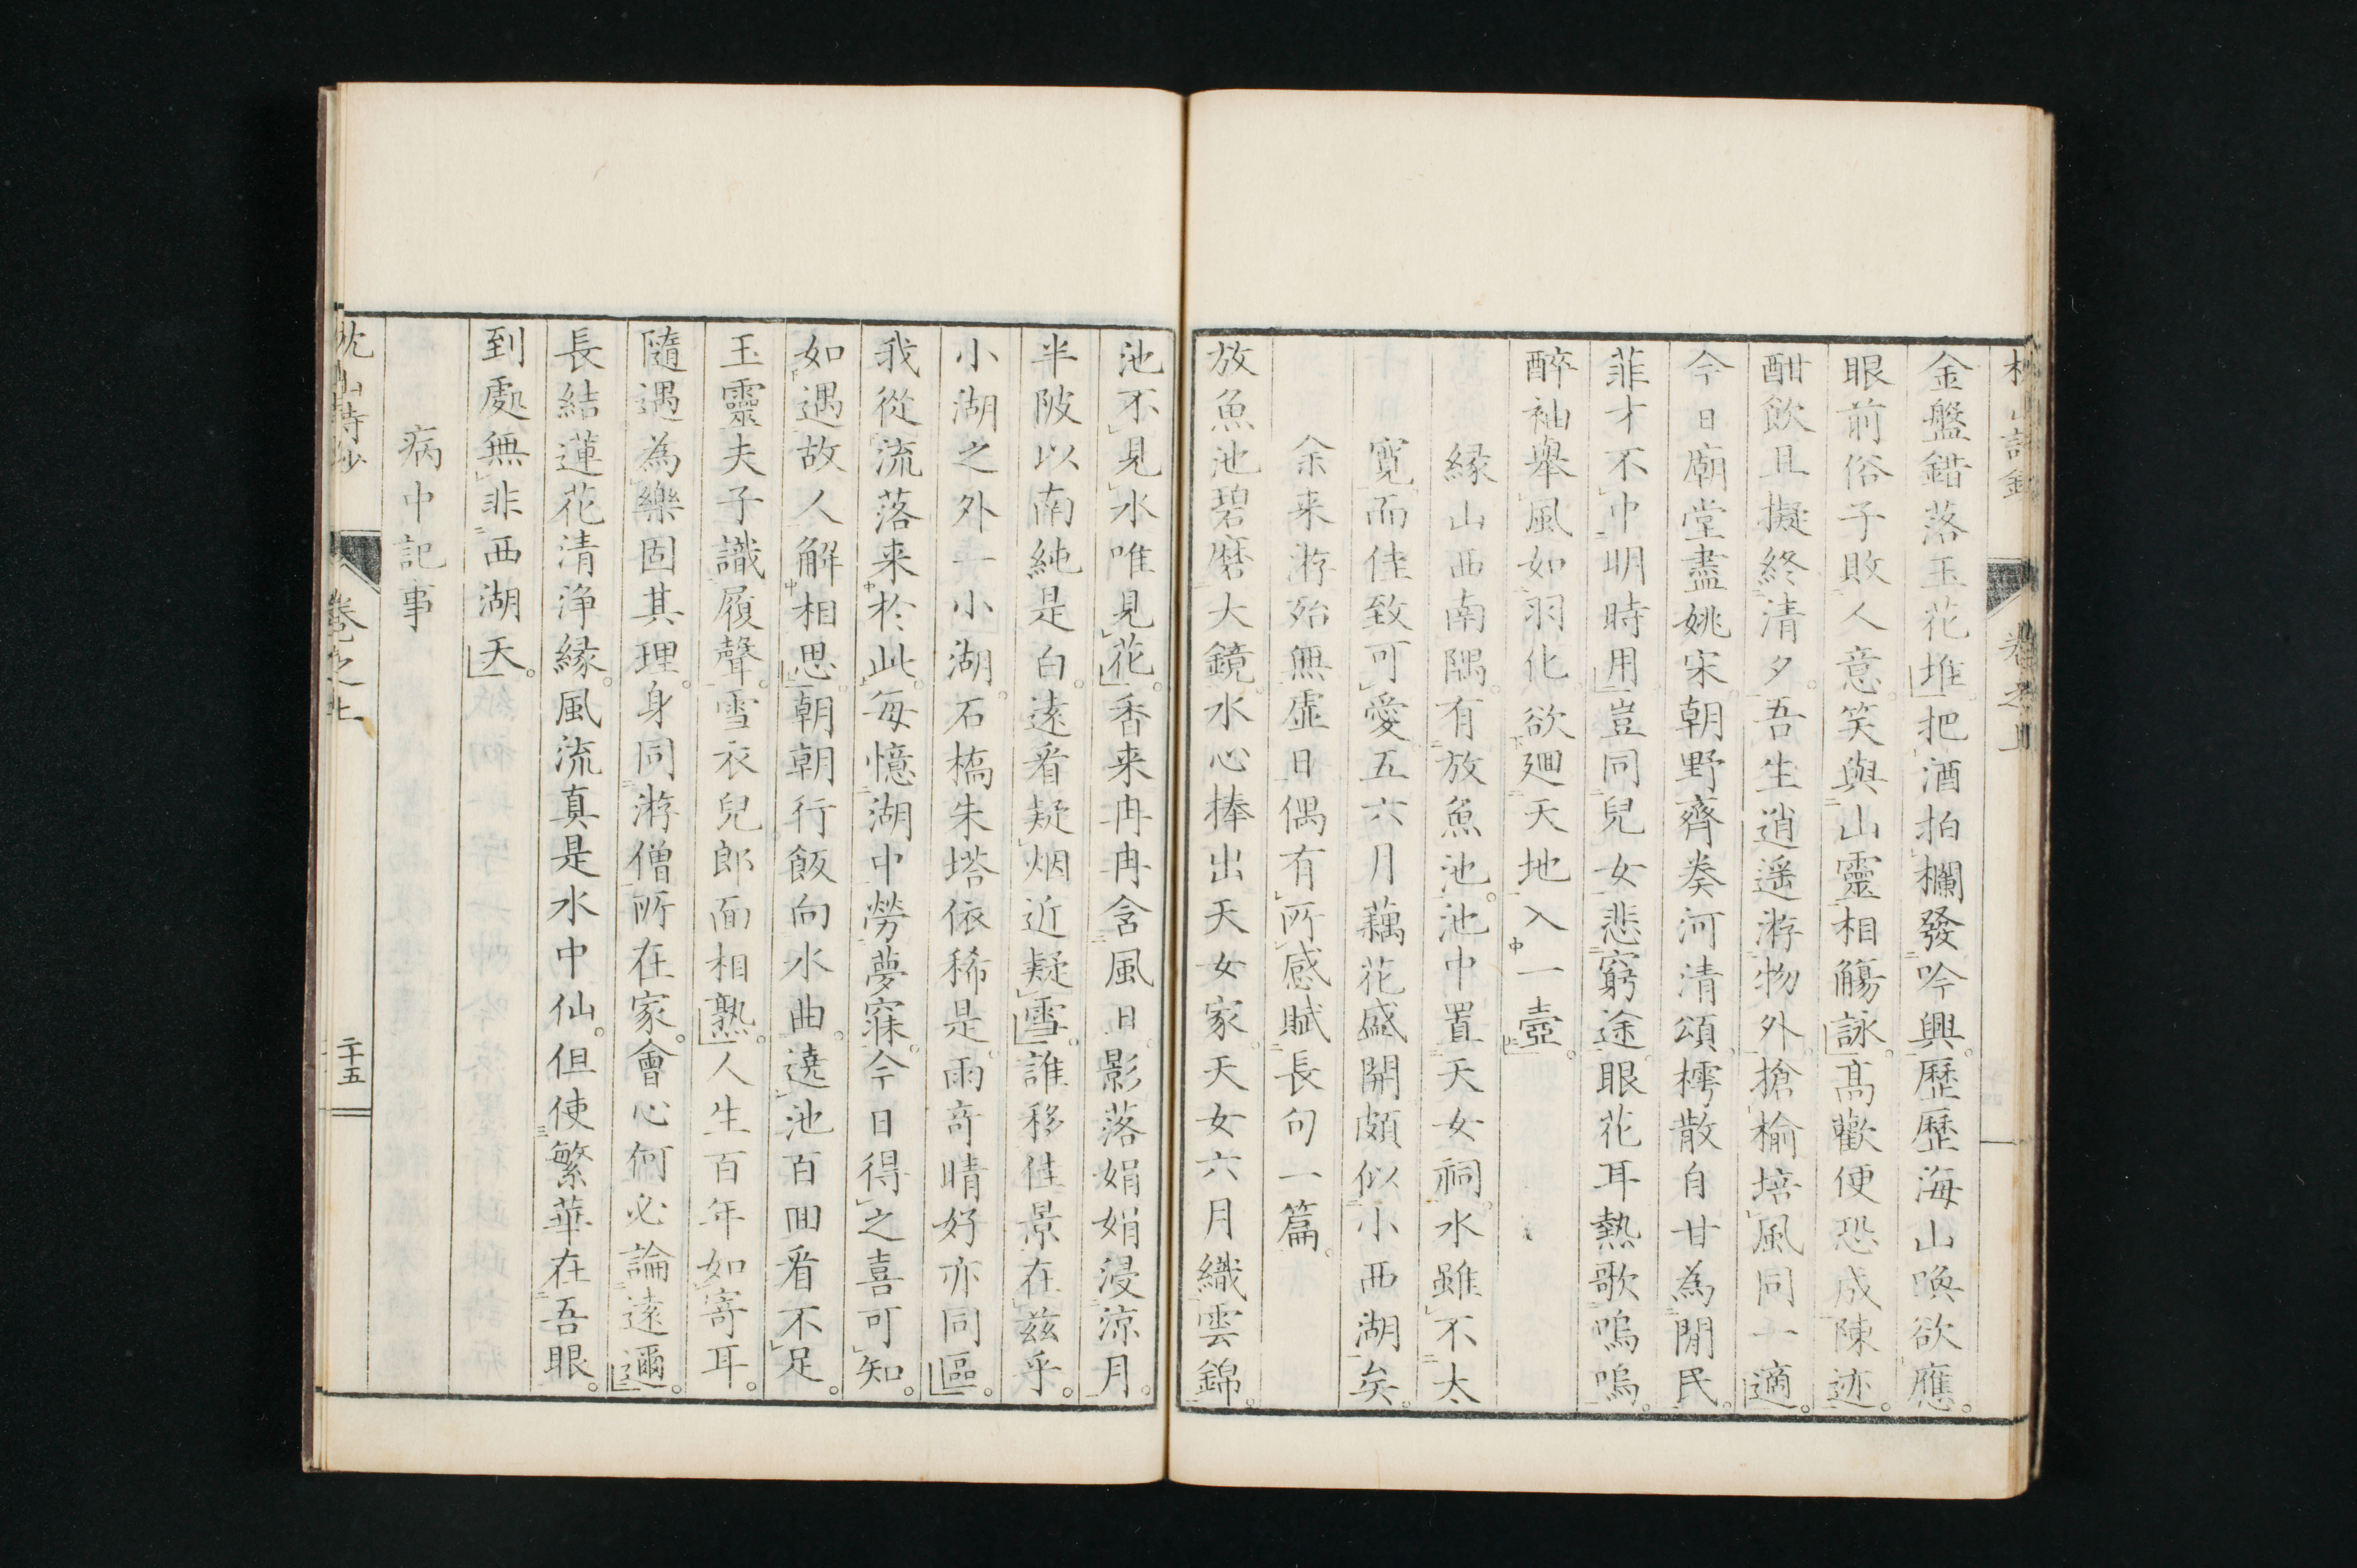 金盤錯落玉花堆把酒拍欄發吟興。歷歷海山喚欲應。
眼前俗子敗人意。笑與山靈相觴詠。高歡便恐成陳迹。
酣飲且擬終清夕。吾生逍遥游物外。搶榆培風同一適。
今日廟堂盡姚宋。朝野齊奏河清頌。樗散自甘為閒民。
菲才不中明時用。豈同兒女悲窮途。眼花耳熱歌嗚嗚。
醉袖舉風如羽化。欲廻天地入一壺。
緣山西南隅。有放魚池。池中置天女祠。水雖不太
寬。而佳致可愛。五六月藕花盛開。頗似小西湖矣。
余来游殆無虛日。偶有所感。賦長句一篇。
放魚池碧磨大鏡。水心捧出天女家。天女六月織雲錦。
池不見水唯見花。香来冉冉含風日。影落娟娟浸涼月。
半陂以南純是白。遠看疑烟近疑雪。誰移佳景在茲乎。
小湖之外一小湖。石橋朱塔依稀是。雨奇晴好亦同區。
我從流落来於此。每憶湖中勞夢寐。今日得之喜可知。
如遇故人解相思。朝朝行飯向水曲。遶池百回看不足。
玉靈夫子識履聲。雪衣兒郎面相熟。人生百年如寄耳。
隨遇為樂固其理。身同游僧所在家。會心何必論遠邇。
長結蓮花清浄緣。風流真是水中仙。但使繁華在吾眼。
到處無非西湖天。
病中記事
枕山詩鈔
卷之上
二十五